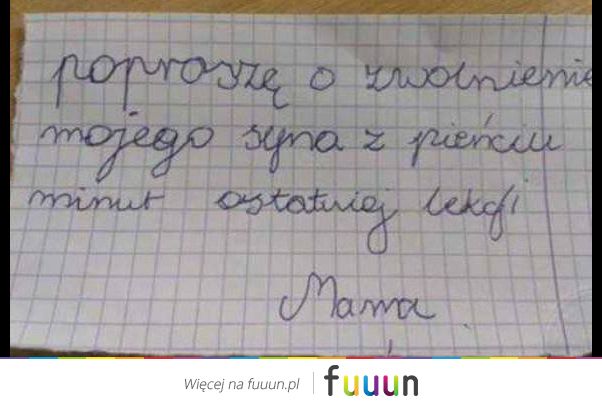 poproszę o zwolnienie
mojego syna z pieńciu
minut ostatniej lekcji
Mama
Więcej na fuuun.pl
fuuun